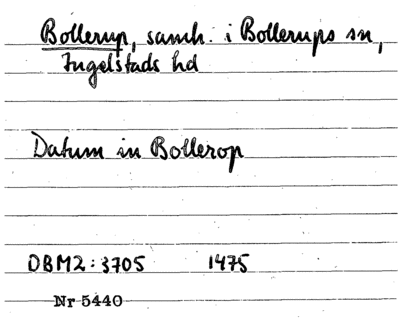 Bollerup, samh. i Bollerups sn,
Ingelstads hd
Datum in Bollerop
DBM2:3705 1475
Nr 5440